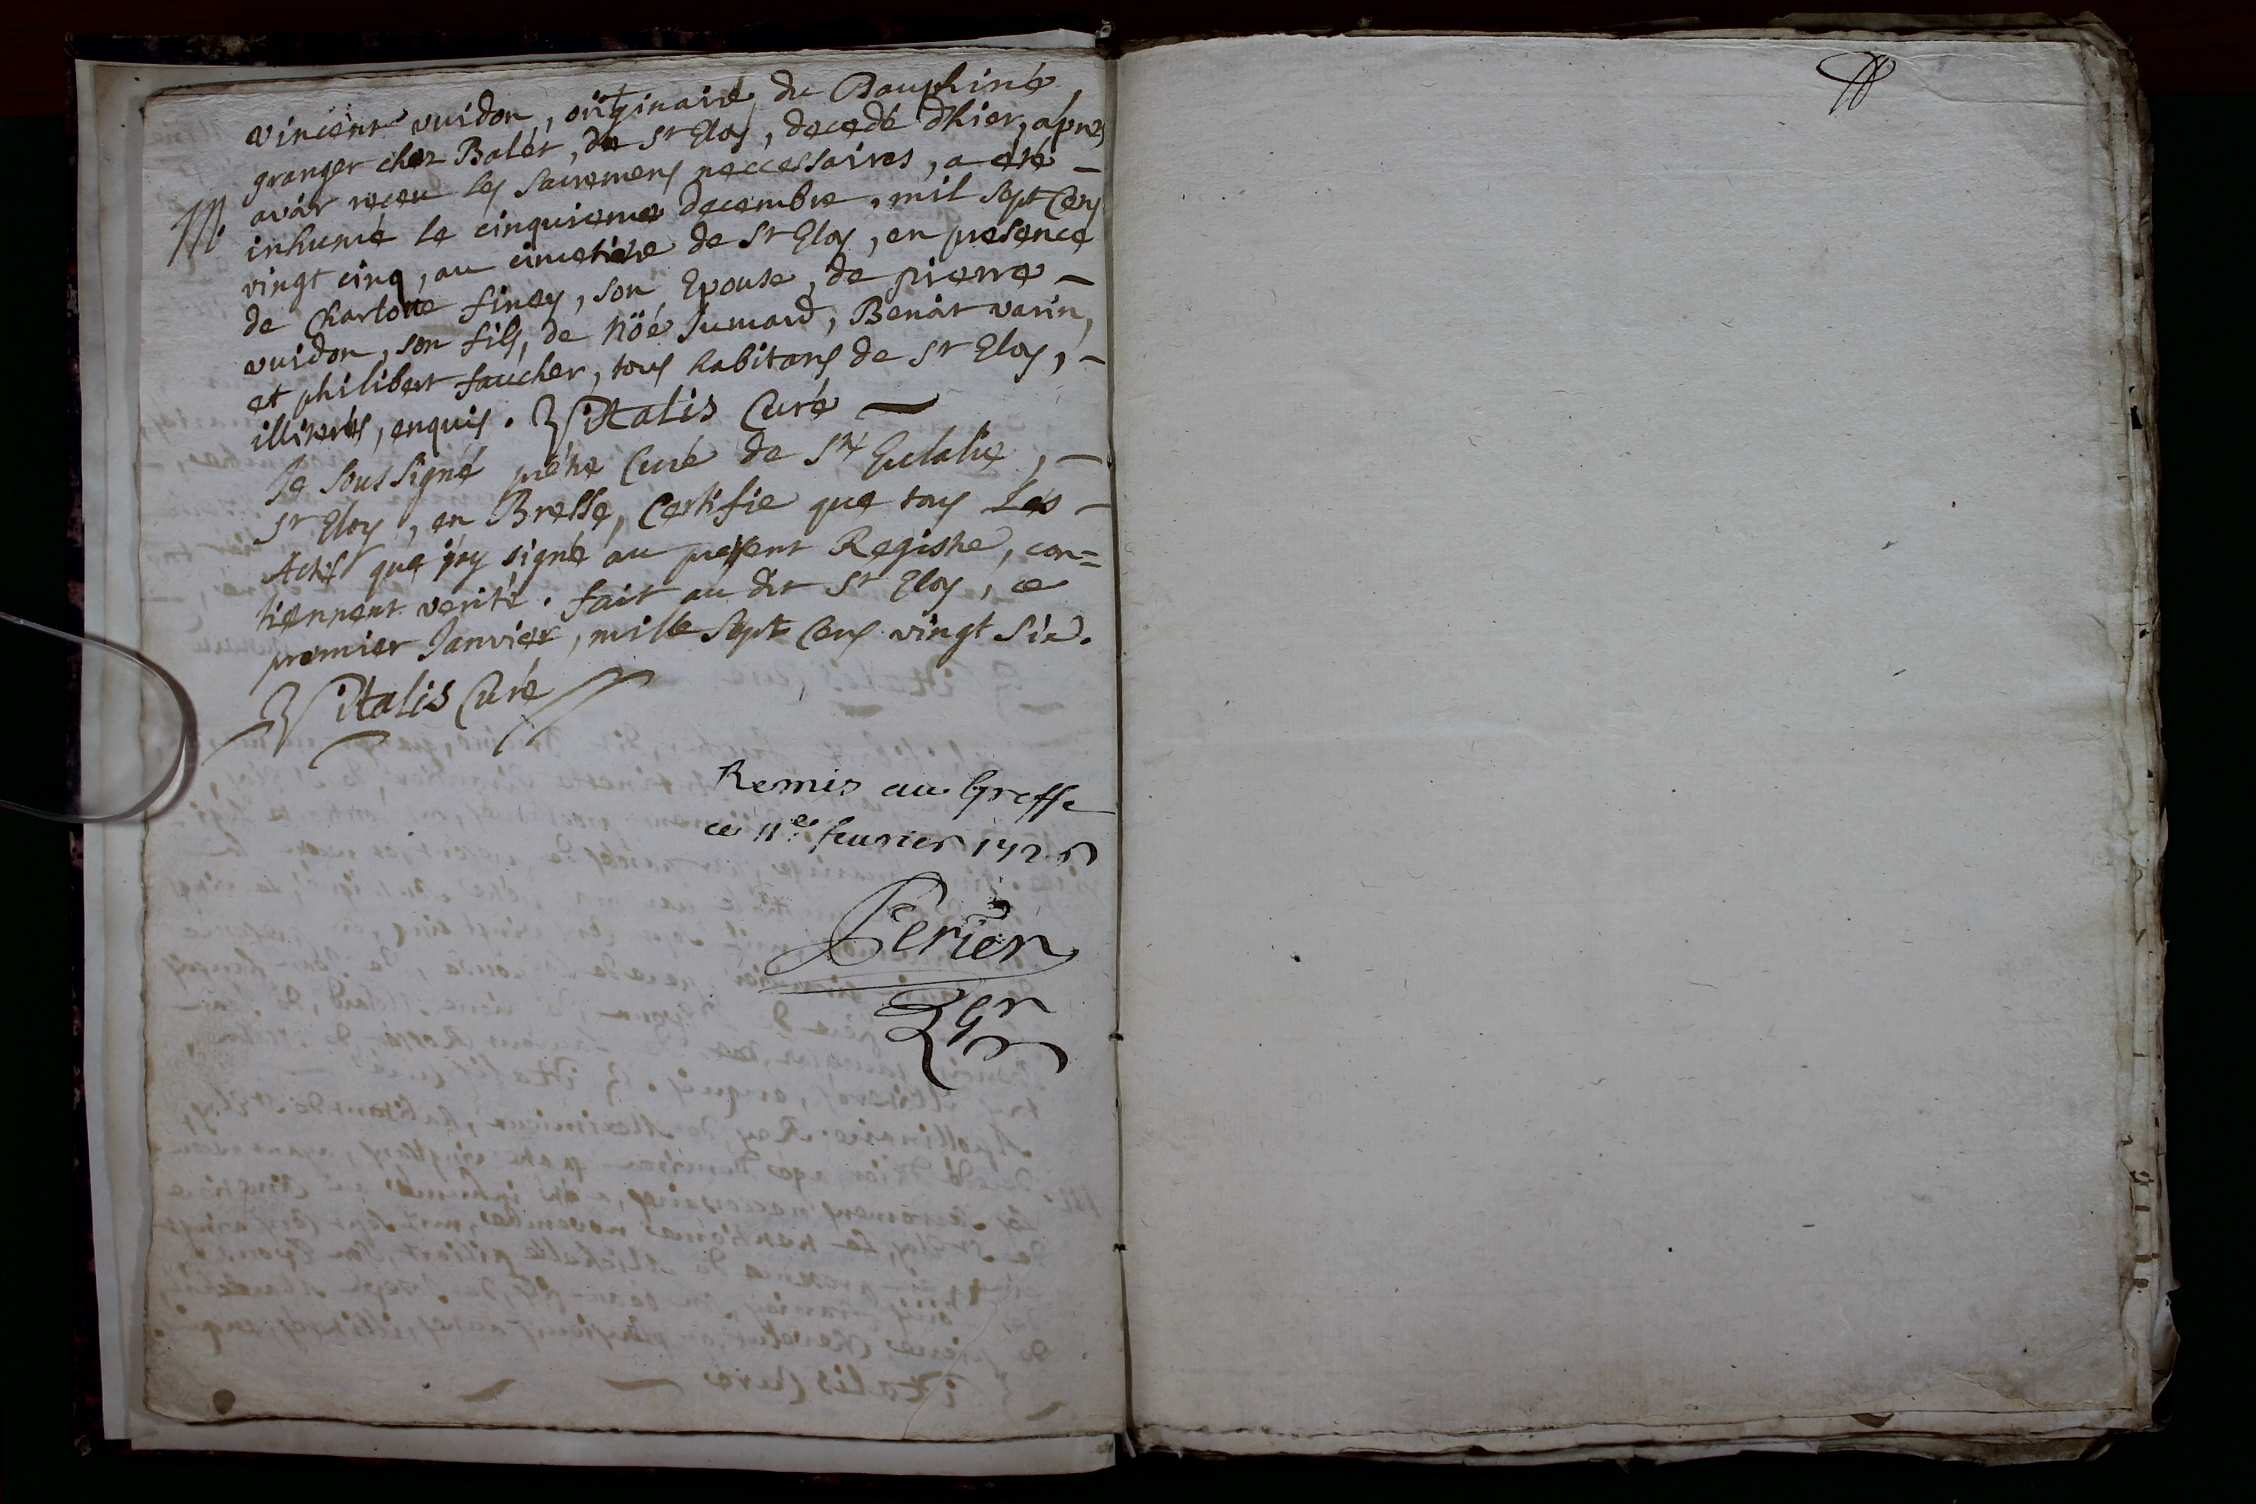 vincent vuidon, originaire du Dauphiné,
granger chez Balet, de St Eloy, decedé d'hier, apres
avoir receu les sacremens neccessaires, a eté
inhumé le cinquieme decembre, mil sept Cens
M.
vingt cinq, au cimetiére de St Eloy, en presence
de Charlotte finey, son Epouse, de pierre
vuidon, son fils, de nöé Jumard, Benoît varin,
et philibert faucher, tous habitans de St Eloy,
illiterés, enquis. Vitalis Curé
Je sous signé prétre Curé de Ste Eulalie,
St Eloy, en Bresse, Certifie que tous Les
Actes que j'ay signé au present Registre, con=
tiennent verité. fait au dit St Eloy, ce
premier Janvier, mille sept Cens vingt six.
Vitalis Curé
Remis au Greffe
ce 11e feurier 1726
Perier